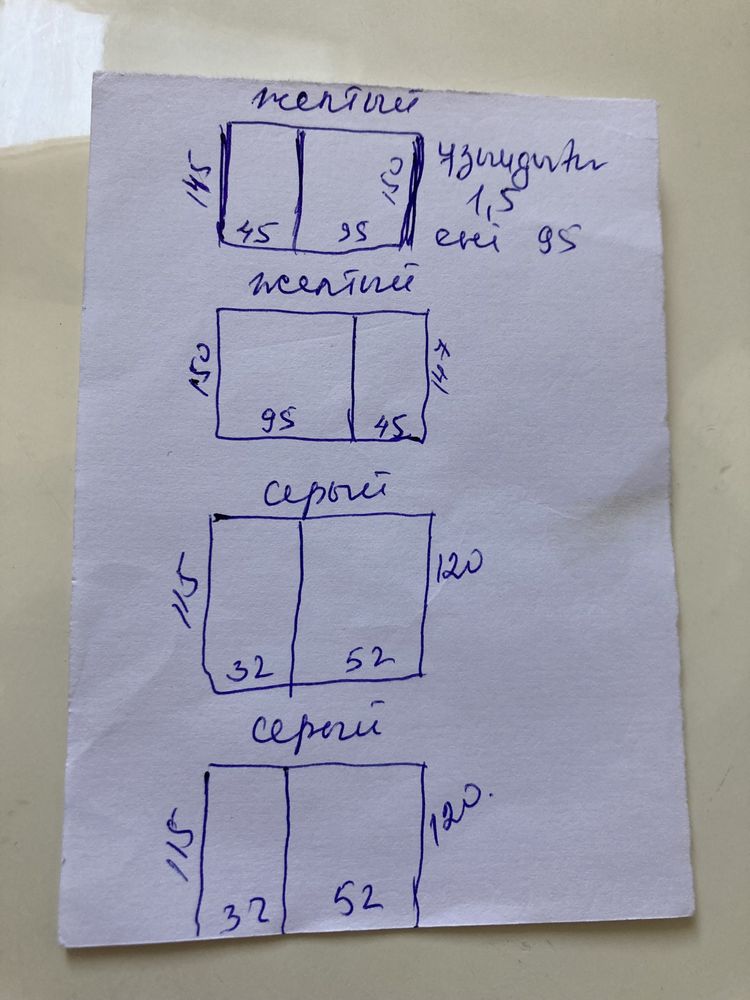 желтый
145 45 95 150
ұзындығы
1,5
ені 95
желтый
150 95 45 147
серый
115 32 52 120
серый
115 32 52 120.